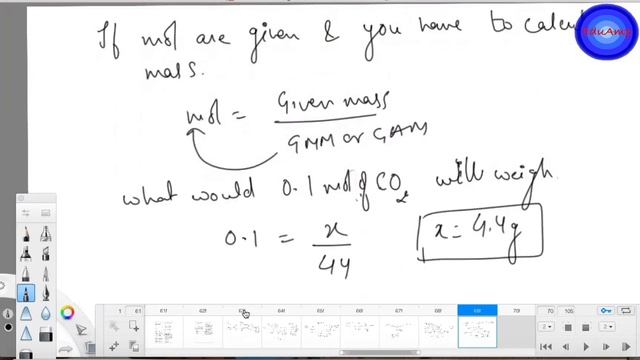 If mol are given & you have to calcul
mass.
EduAmp
mol = Given mass
GMM or GAM
what would 0.1 mol of CO2 will weigh.
0.1 = x
44
x = 4.4g
1 61 611 621 631 641 661 671 681 691 701 70 105
2 2